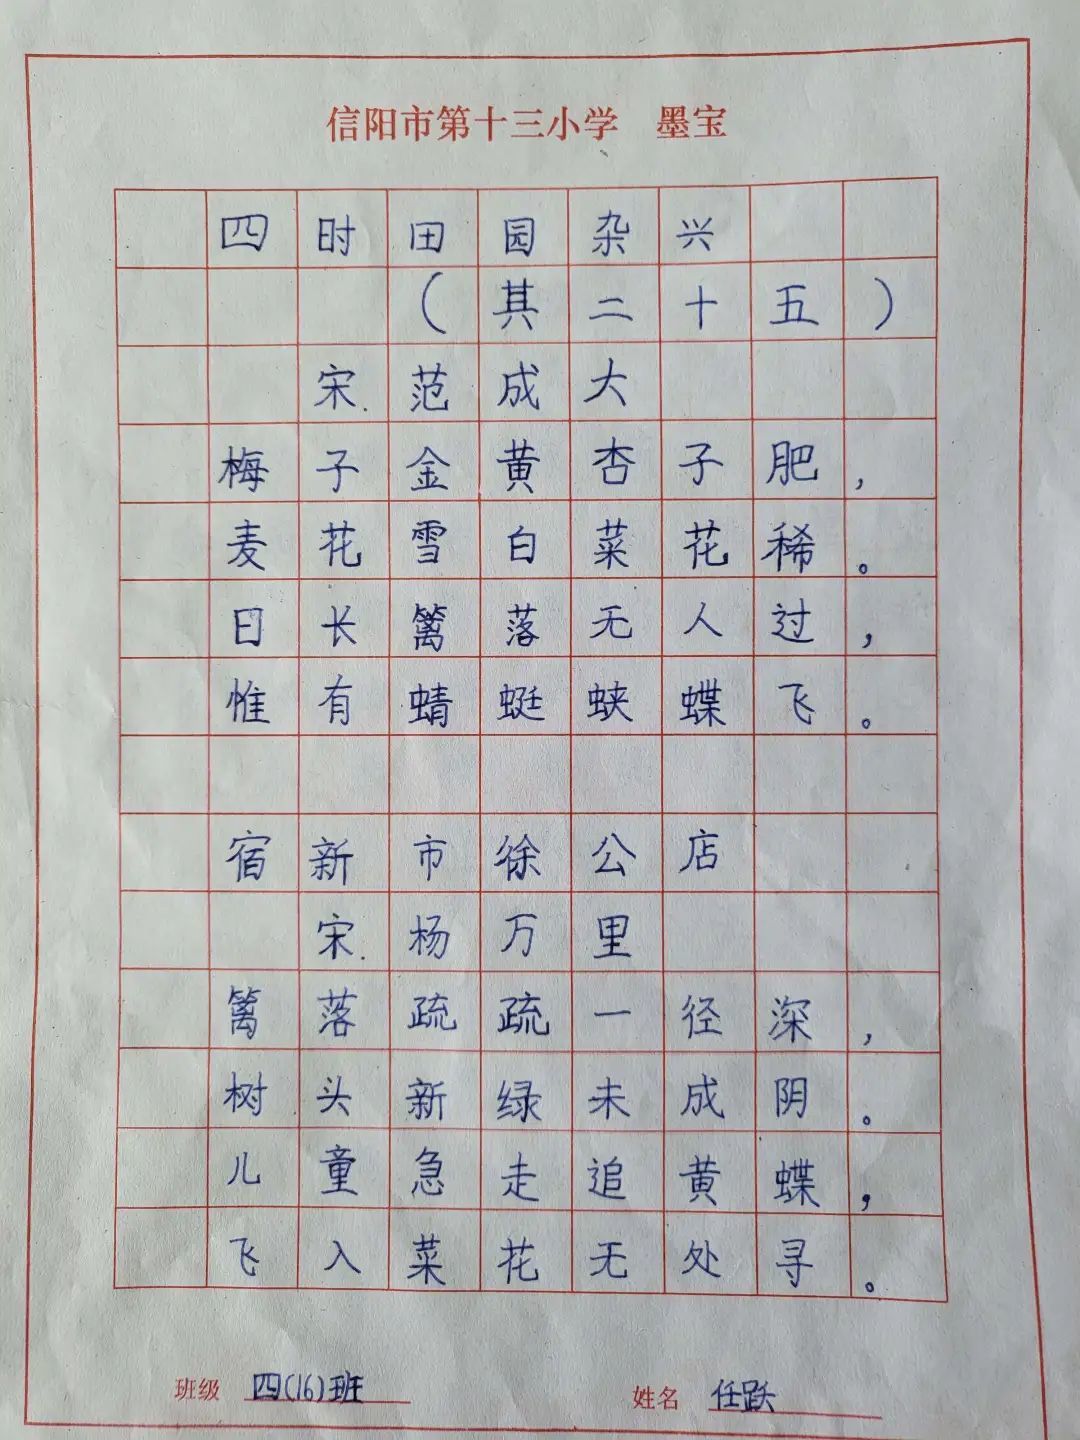 信阳市第十三小学 墨宝
四时田园杂兴
（其二十五）
宋.范成大
梅子金黄杏子肥，
麦花雪白菜花稀。
日长篱落无人过，
惟有蜻蜓蛱蝶飞。
宿新市徐公店
宋.杨万里
篱落疏疏一径深，
树头新绿未成阴。
儿童急走追黄蝶，
飞入菜花无处寻。
班级 四(16)班 姓名 任跃